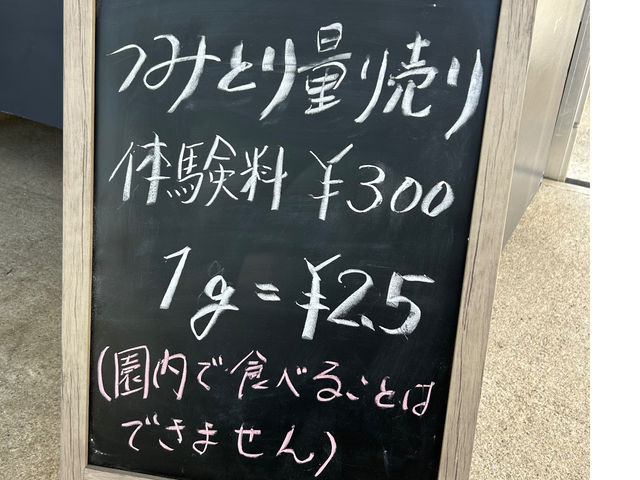 つみとり量り売り
体験料 ¥300
1g=¥2.5
(園内で食べることは
できません)